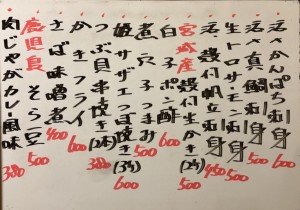 活〆かんぱち刺身 600
活〆真鯛刺身 500
生トロサーモン刺身 500
活〆帆立刺身 450
宮城産殻付生かき(2ヶ) 500
白子ポン酢 600
煮穴子つまみ 500
姫サザエつぼ焼き(3ヶ) 600
つぶ貝串焼き(2本) 380
かきフライ 600
さば味噌煮 400
鹿児島そら豆 500
肉じゃがカレー風味 380